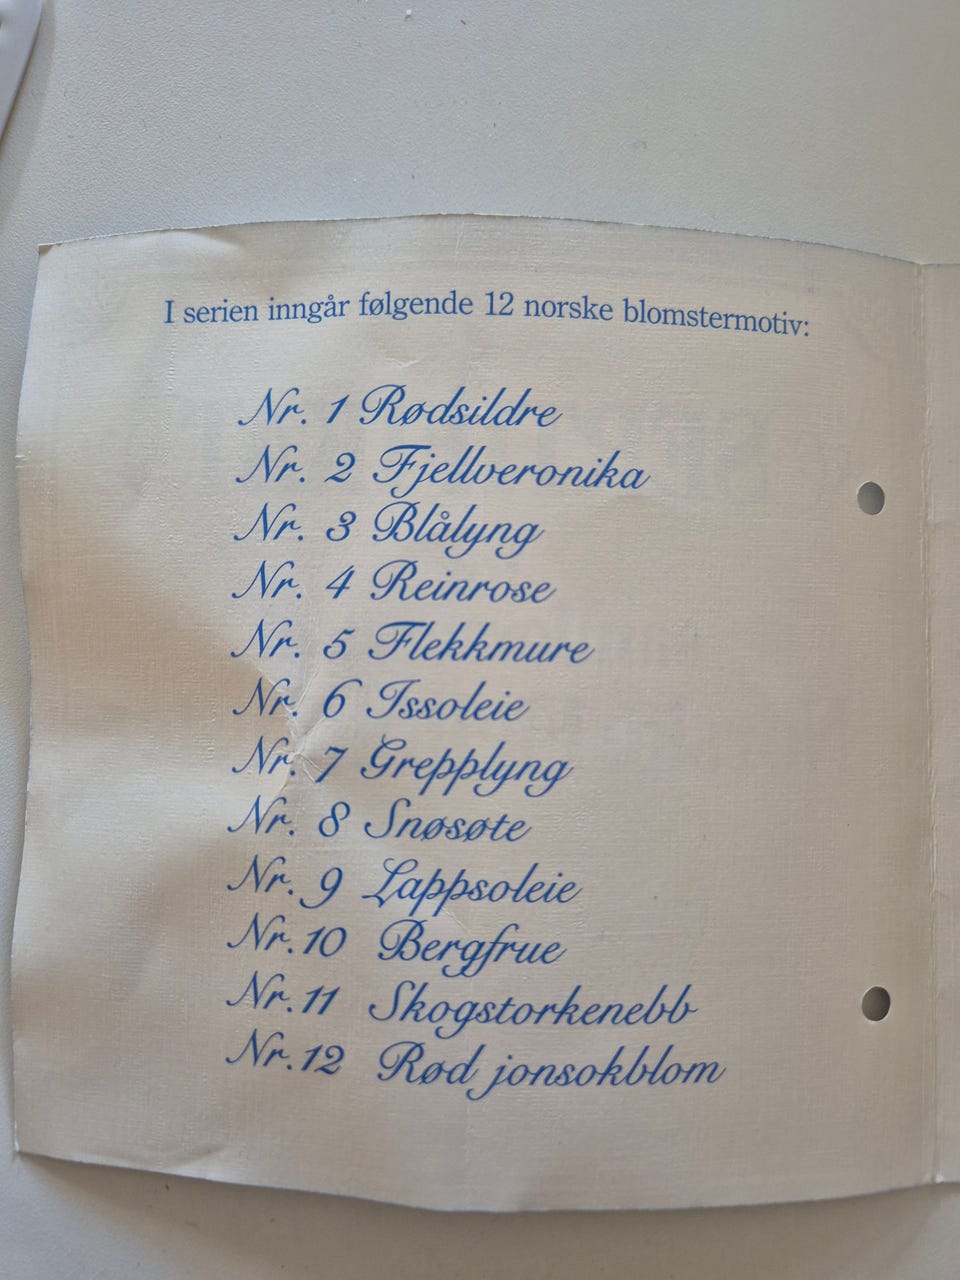 I serien inngår følgende 12 norske blomstermotiv:
Nr. 1 Rødsildre
Nr. 2 Fjellveronika
Nr. 3 Blålyng
Nr. 4 Reinrose
Nr. 5 Flekkmure
Nr. 6 Issoleie
Nr. 7 Grepplyng
Nr. 8 Snøsøte
Nr. 9 Lappsoleie
Nr. 10 Bergfrue
Nr. 11 Skogstorkenebb
Nr. 12 Rød jonsokblom